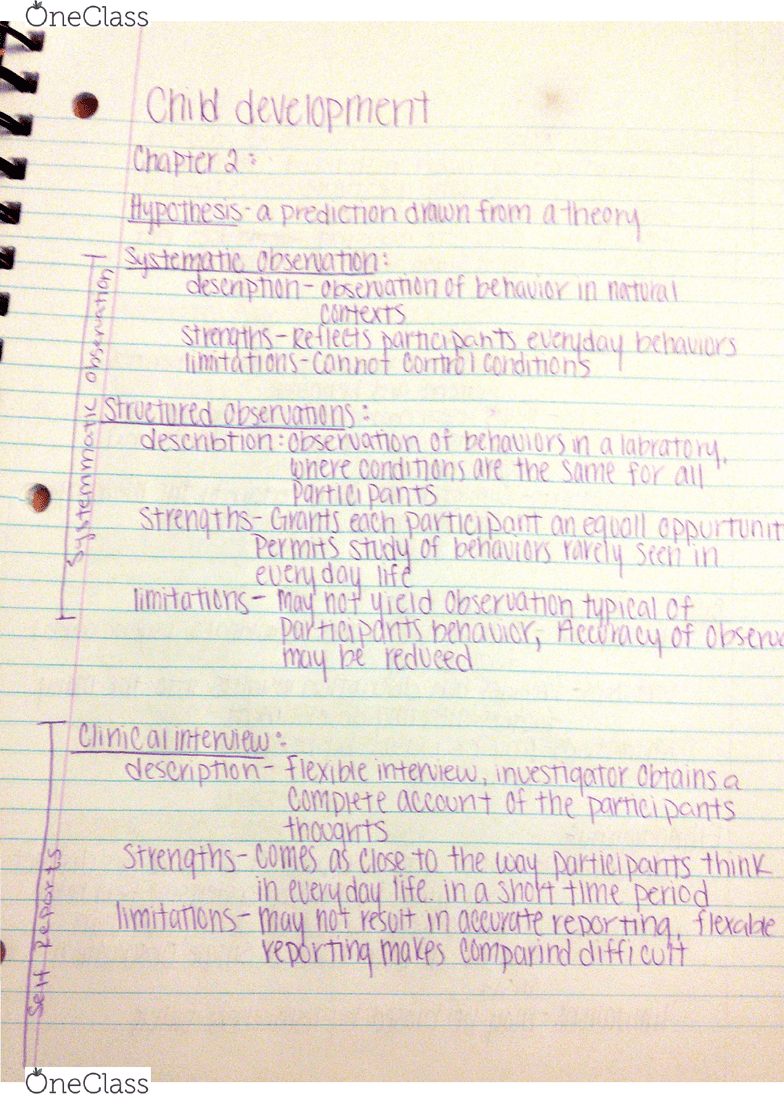 OneClass
Child development
Chapter 2:
Hypothesis - a prediction drawn from a theory
Systemmatic observation
Systematic observation:
description - observation of behavior in natural
contexts
Strengths - Reflects participants everyday behaviors
limitations - Cannot control conditions
Structured observations:
describtion: observation of behaviors in a labratory,
where conditions are the same for all
participants
Strengths - Grants each participant an equall oppurtunit
Permits study of behaviors rarely seen in
everyday life
limitations - may not yield observation typical of
participants behavior, Accuracy of observa
may be reduced
Self Reports
Clinical interview:
description - flexible interview, investigator obtains a
complete account of the participants
thoughts
Strengths - comes as close to the way participants think
in everyday life. in a short time period
limitations - may not result in accurate reporting, flexable
reporting makes comparind difficult
OneClass